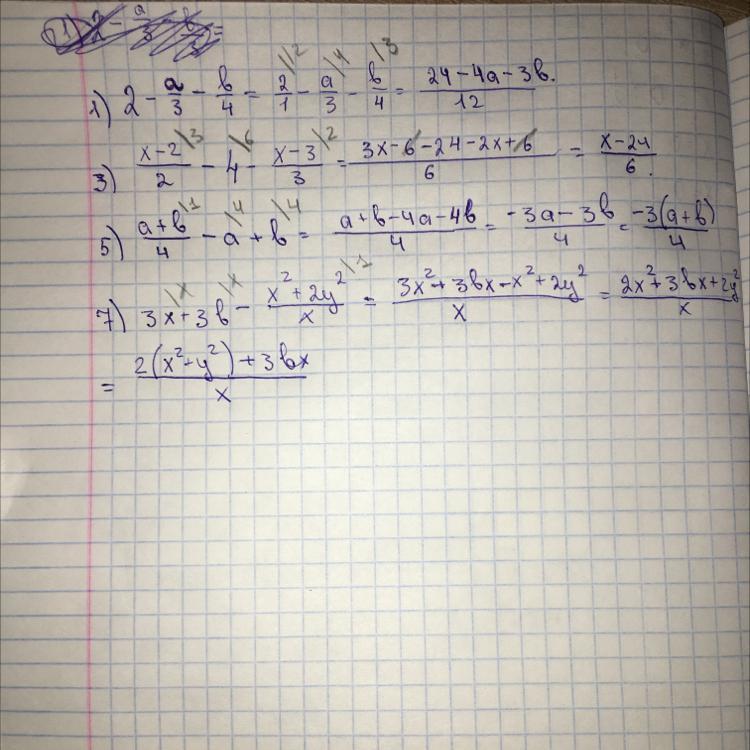 1) 2 - a/3 - b/4 = 2/1\12 - a/3\4 - b/4\3 = (24-4a-3b)/12.
3) (x-2)/2\3 - 4\6 - (x-3)/3\2 = (3x-6-24-2x+6)/6 = (x-24)/6.
5) (a+b)/4\1 - a\4 + b\4 = (a+b-4a-4b)/4 = (-3a-3b)/4 = -3(a+b)/4
7) 3x\x + 3b\x - (x²+2y²)/x\1 = (3x²+3bx-x²+2y²)/x = (2x²+3bx+2y²)/x
= (2(x²-y²)+3bx)/x